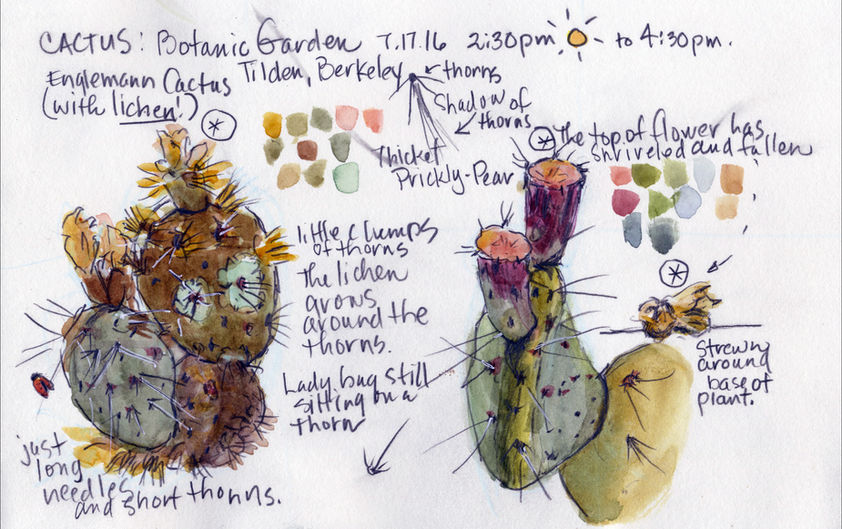 CACTUS: Botanic Garden 7.17.16 2:30pm to 4:30pm.
Tilden, Berkeley
Englemann Cactus
(with lichen!)
thorns
Shadow of
thorns
Thicket
Prickly-Pear
The top of flower has
shriveled and fallen
little clumps
of thorns
The lichen
grows
around the
thorns.
Lady bug still
sitting on a
thorn
Strewn
around
base of
plant.
just
long
needles
and short thorns.